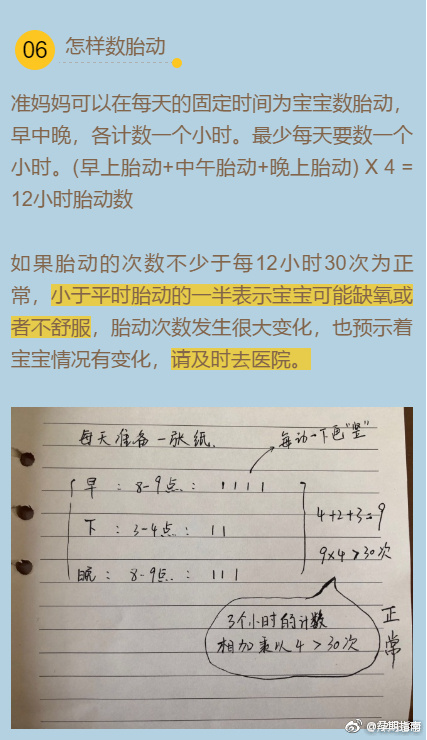 06 怎样数胎动
准妈妈可以在每天的固定时间为宝宝数胎动，
早中晚，各计数一个小时。最少每天要数一个
小时。(早上胎动+中午胎动+晚上胎动) X 4 =
12小时胎动数
如果胎动的次数不少于每12小时30次为正
常，小于平时胎动的一半表示宝宝可能缺氧或
者不舒服，胎动次数发生很大变化，也预示着
宝宝情况有变化，请及时去医院。
每天准备一张纸.
每动一下画"竖"
早 : 8-9点 : 1 1 1 1
下 : 3-4点 : 1 1
晚 : 8-9点 : 1 1 1
4+2+3=9
9×4>30次
3个小时的计数
相加乘以4>30次
正常
@孕期指南